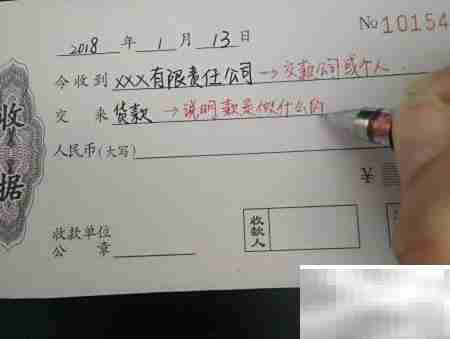 No 10154
2018 年 1 月 13 日
今收到 XXX有限责任公司 → 交款公司或个人
交 来 货款 → 说明款是做什么的
人民币(大写)
¥
收款单位
公 章
收款人
收据